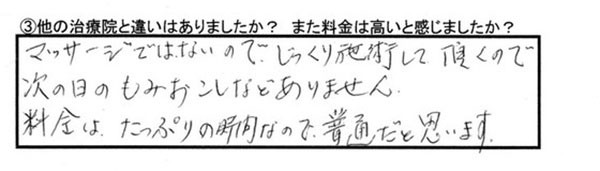 ③他の治療院と違いはありましたか？ また料金は高いと感じましたか？
マッサージではないので、じっくり施術して頂くので
次の日のもみおこしなどありません.
料金は、たっぷりの時間なので、普通だと思います.